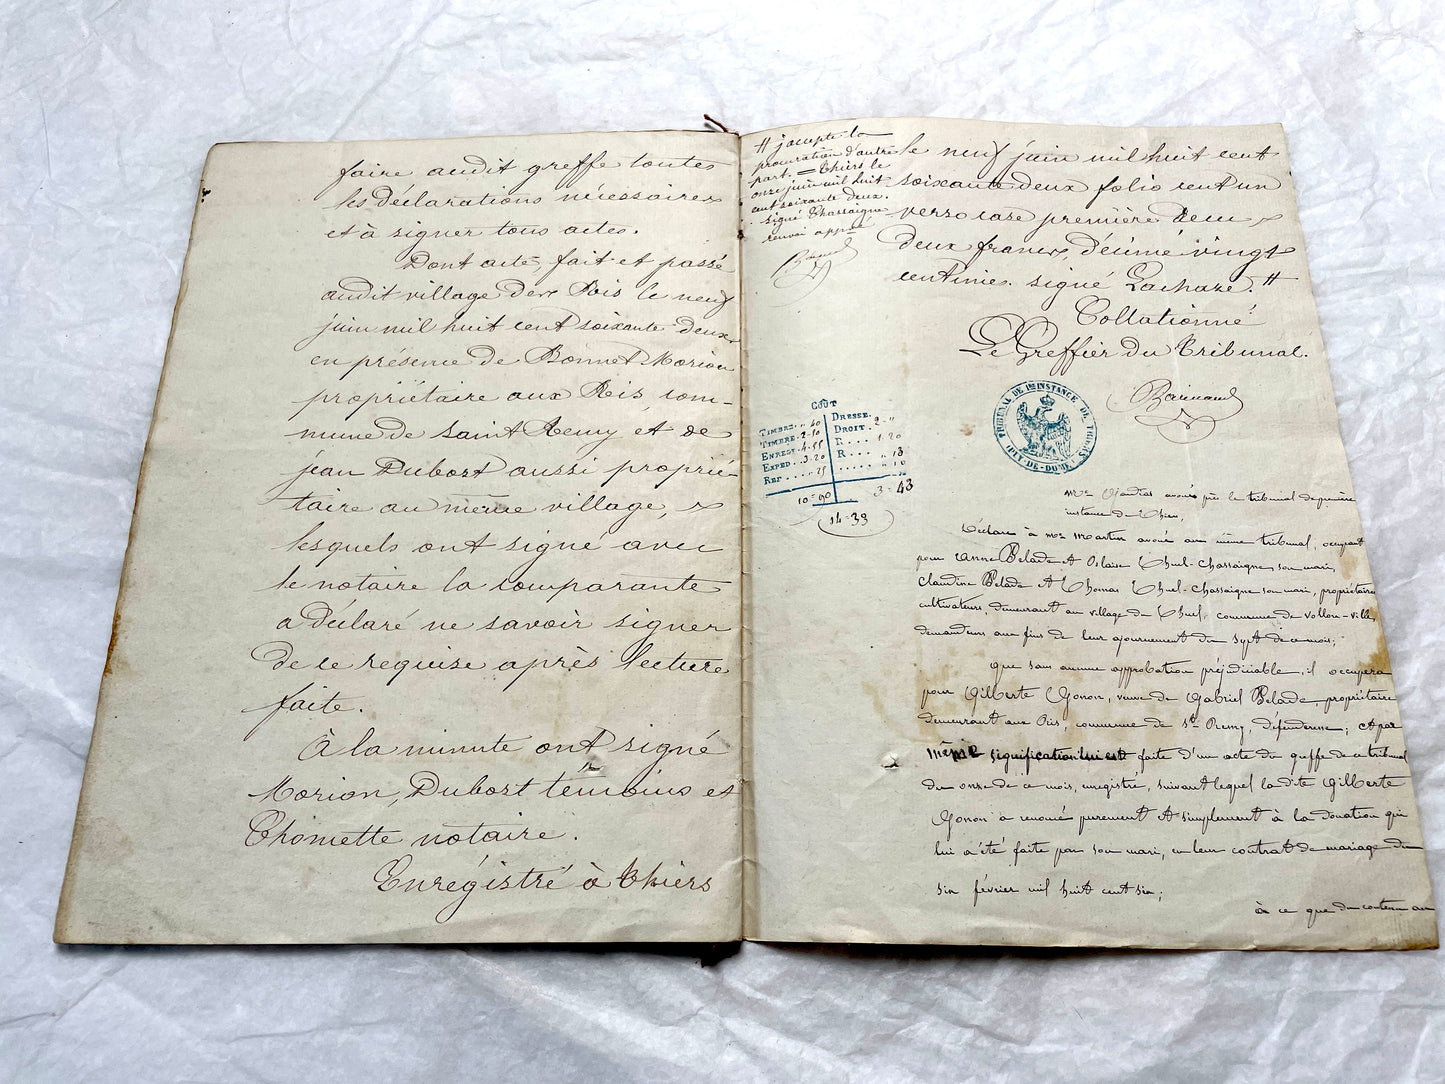 faire audit greffe toutes
les déclarations nécessaires
et à signer tous actes.
Dont acte, fait et passé
audit village des Rois le neuf
juin mil huit cent soixante-deux
en présence de Bonnet Morion
propriétaire aux Rois, com-
mune de saint Remy, et de
jean Dubost aussi proprié-
taire au même village,
lesquels ont signé avec
le notaire la comparante
a déclaré ne savoir signer
de ce requise après lecture
faite.
À la minute ont signé
Morion, Dubost témoins et
Thomette notaire.
Enrégistré à Thiers
# j'accepte la
procuration d'autre
part. = Thiers le
onze juin mil huit
cent soixante deux.
signé Chassaigne
renvoi app.vé
le neuf juin mil huit cent
soixante deux folio cent un
verso case première Reçu
deux francs, décime vingt
centimes. signé Lachaze. #
Collationné
Le Greffier du Tribunal.
TRIBUNAL DE 1re INSTANCE DE THIERS
(PUY-DE-DOME)
COÛT
TIMBRE. . " 40
TIMBRE. 2-50
ENREGT. 4.95
EXPED. . 3.20
REP . . . . " 25
10-90
DRESSE.
DROIT. 2 - "
R . . . . 1.20
R . . . . " 13
. . . . . " 10
3-43
14-33
Me avoué près le tribunal de première
instance de Thiers,
Déclare à Me Martin avoué au même tribunal, occupant
pour Anne Belade et Thuel-Chassaigne son mari,
Claudine Belade et Thomas Thuel-Chassaigne son mari, propriétaires
cultivateurs, demeurant au village de Thuel, commune de Vollore-ville,
demandeurs aux fins de leur ajournement du sept de ce mois;
que sans aucune approbation préjudiciable, il occupera
pour Gilberte Gonon, veuve de Gabriel Belade, propriétaire
demeurant aux Rois, commune de St Remy, défenderesse; et par
même signification lui est faite d'un acte du greffe de ce tribunal
du onze de ce mois, enregistré, suivant lequel la dite Gilberte
Gonon a renoncé purement et simplement à la donation qui
lui a été faite par son mari, en leur contrat de mariage du
six février mil huit cent six;
à ce que du contenu au